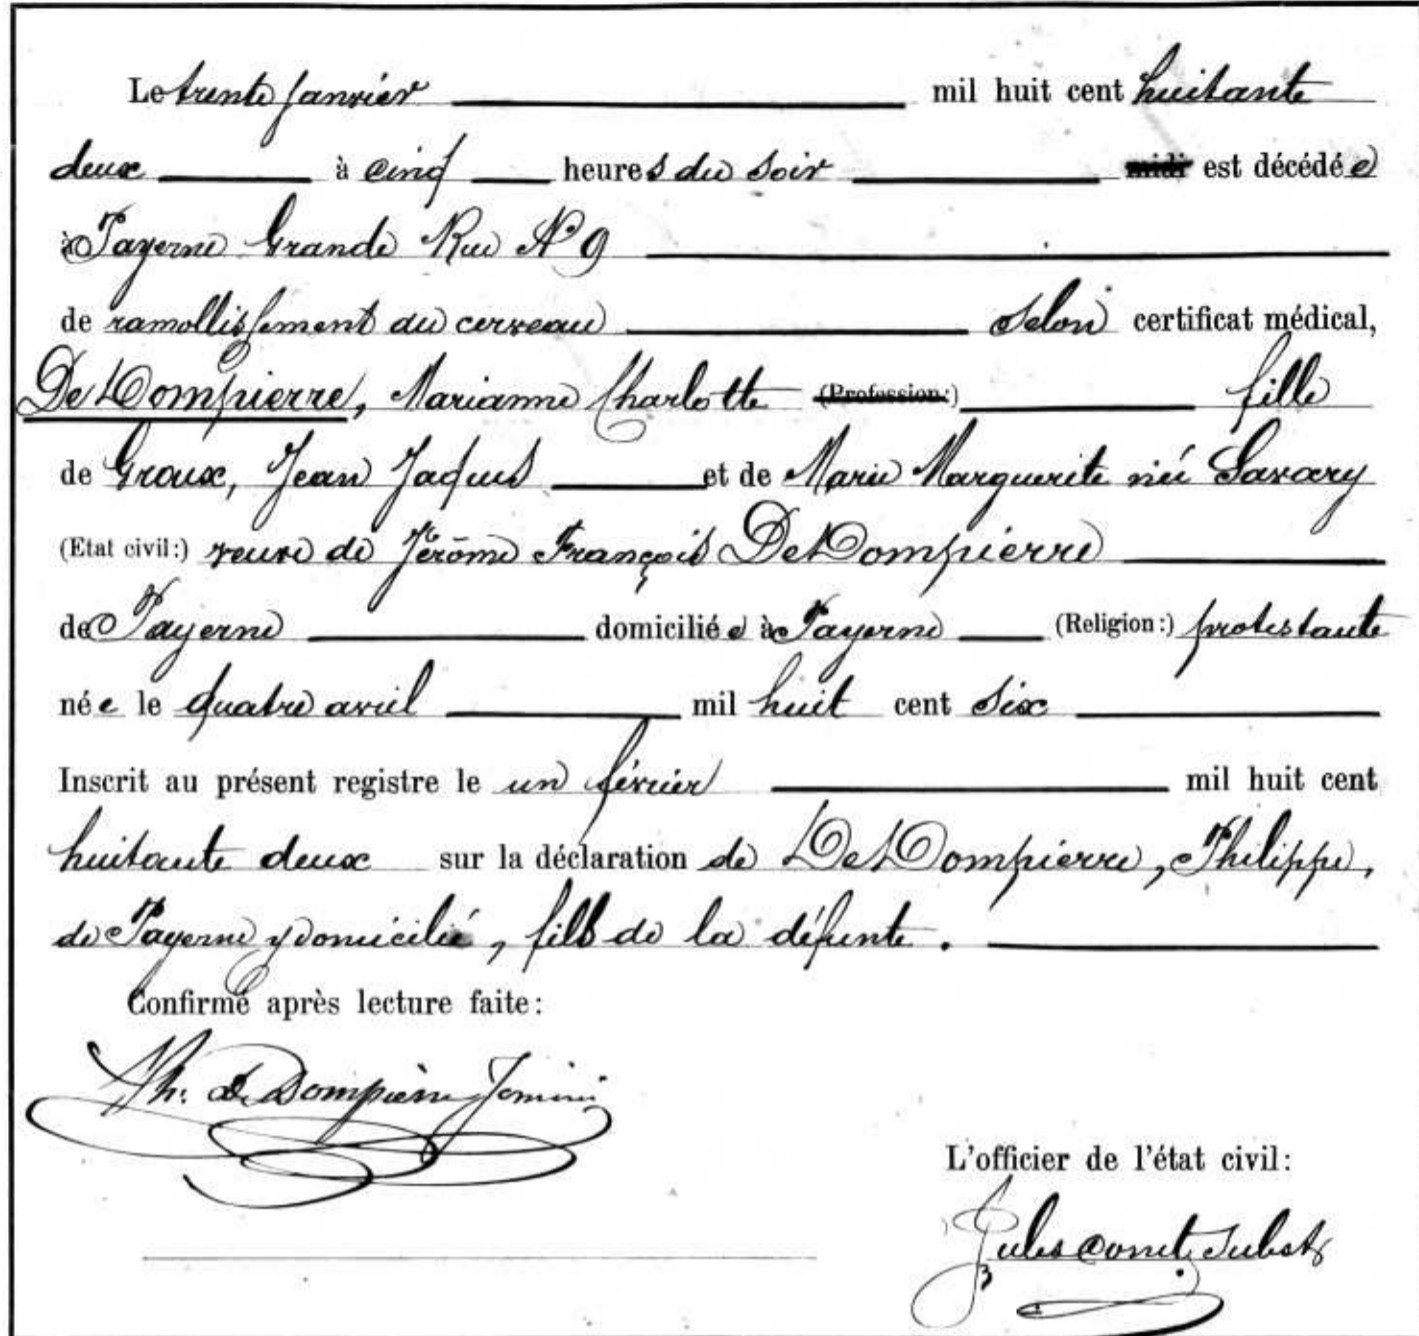 Le trente Janvier mil huit cent huitante
deux à cinq heures du soir midi est décédée
à Payerne Grande Rue No 9
de ramollissement du cerveau selon certificat médical,
De Dompierre, Marianne Charlotte (Profession:) fille
de Groux, Jean Jaques et de Marie Marguerite née Savary
(Etat civil:) veuve de Jérôme François De Dompierre
de Payerne domiciliée à Payerne (Religion:) protestante
née le quatre avril mil huit cent six
Inscrit au présent registre le un février mil huit cent
huitante deux sur la déclaration de De Dompierre, Philippe,
de Payerne y domicilié, fils de la défunte.
Confirmé après lecture faite:
Ph. De Dompierre Jomini
L'officier de l'état civil:
Jules subst